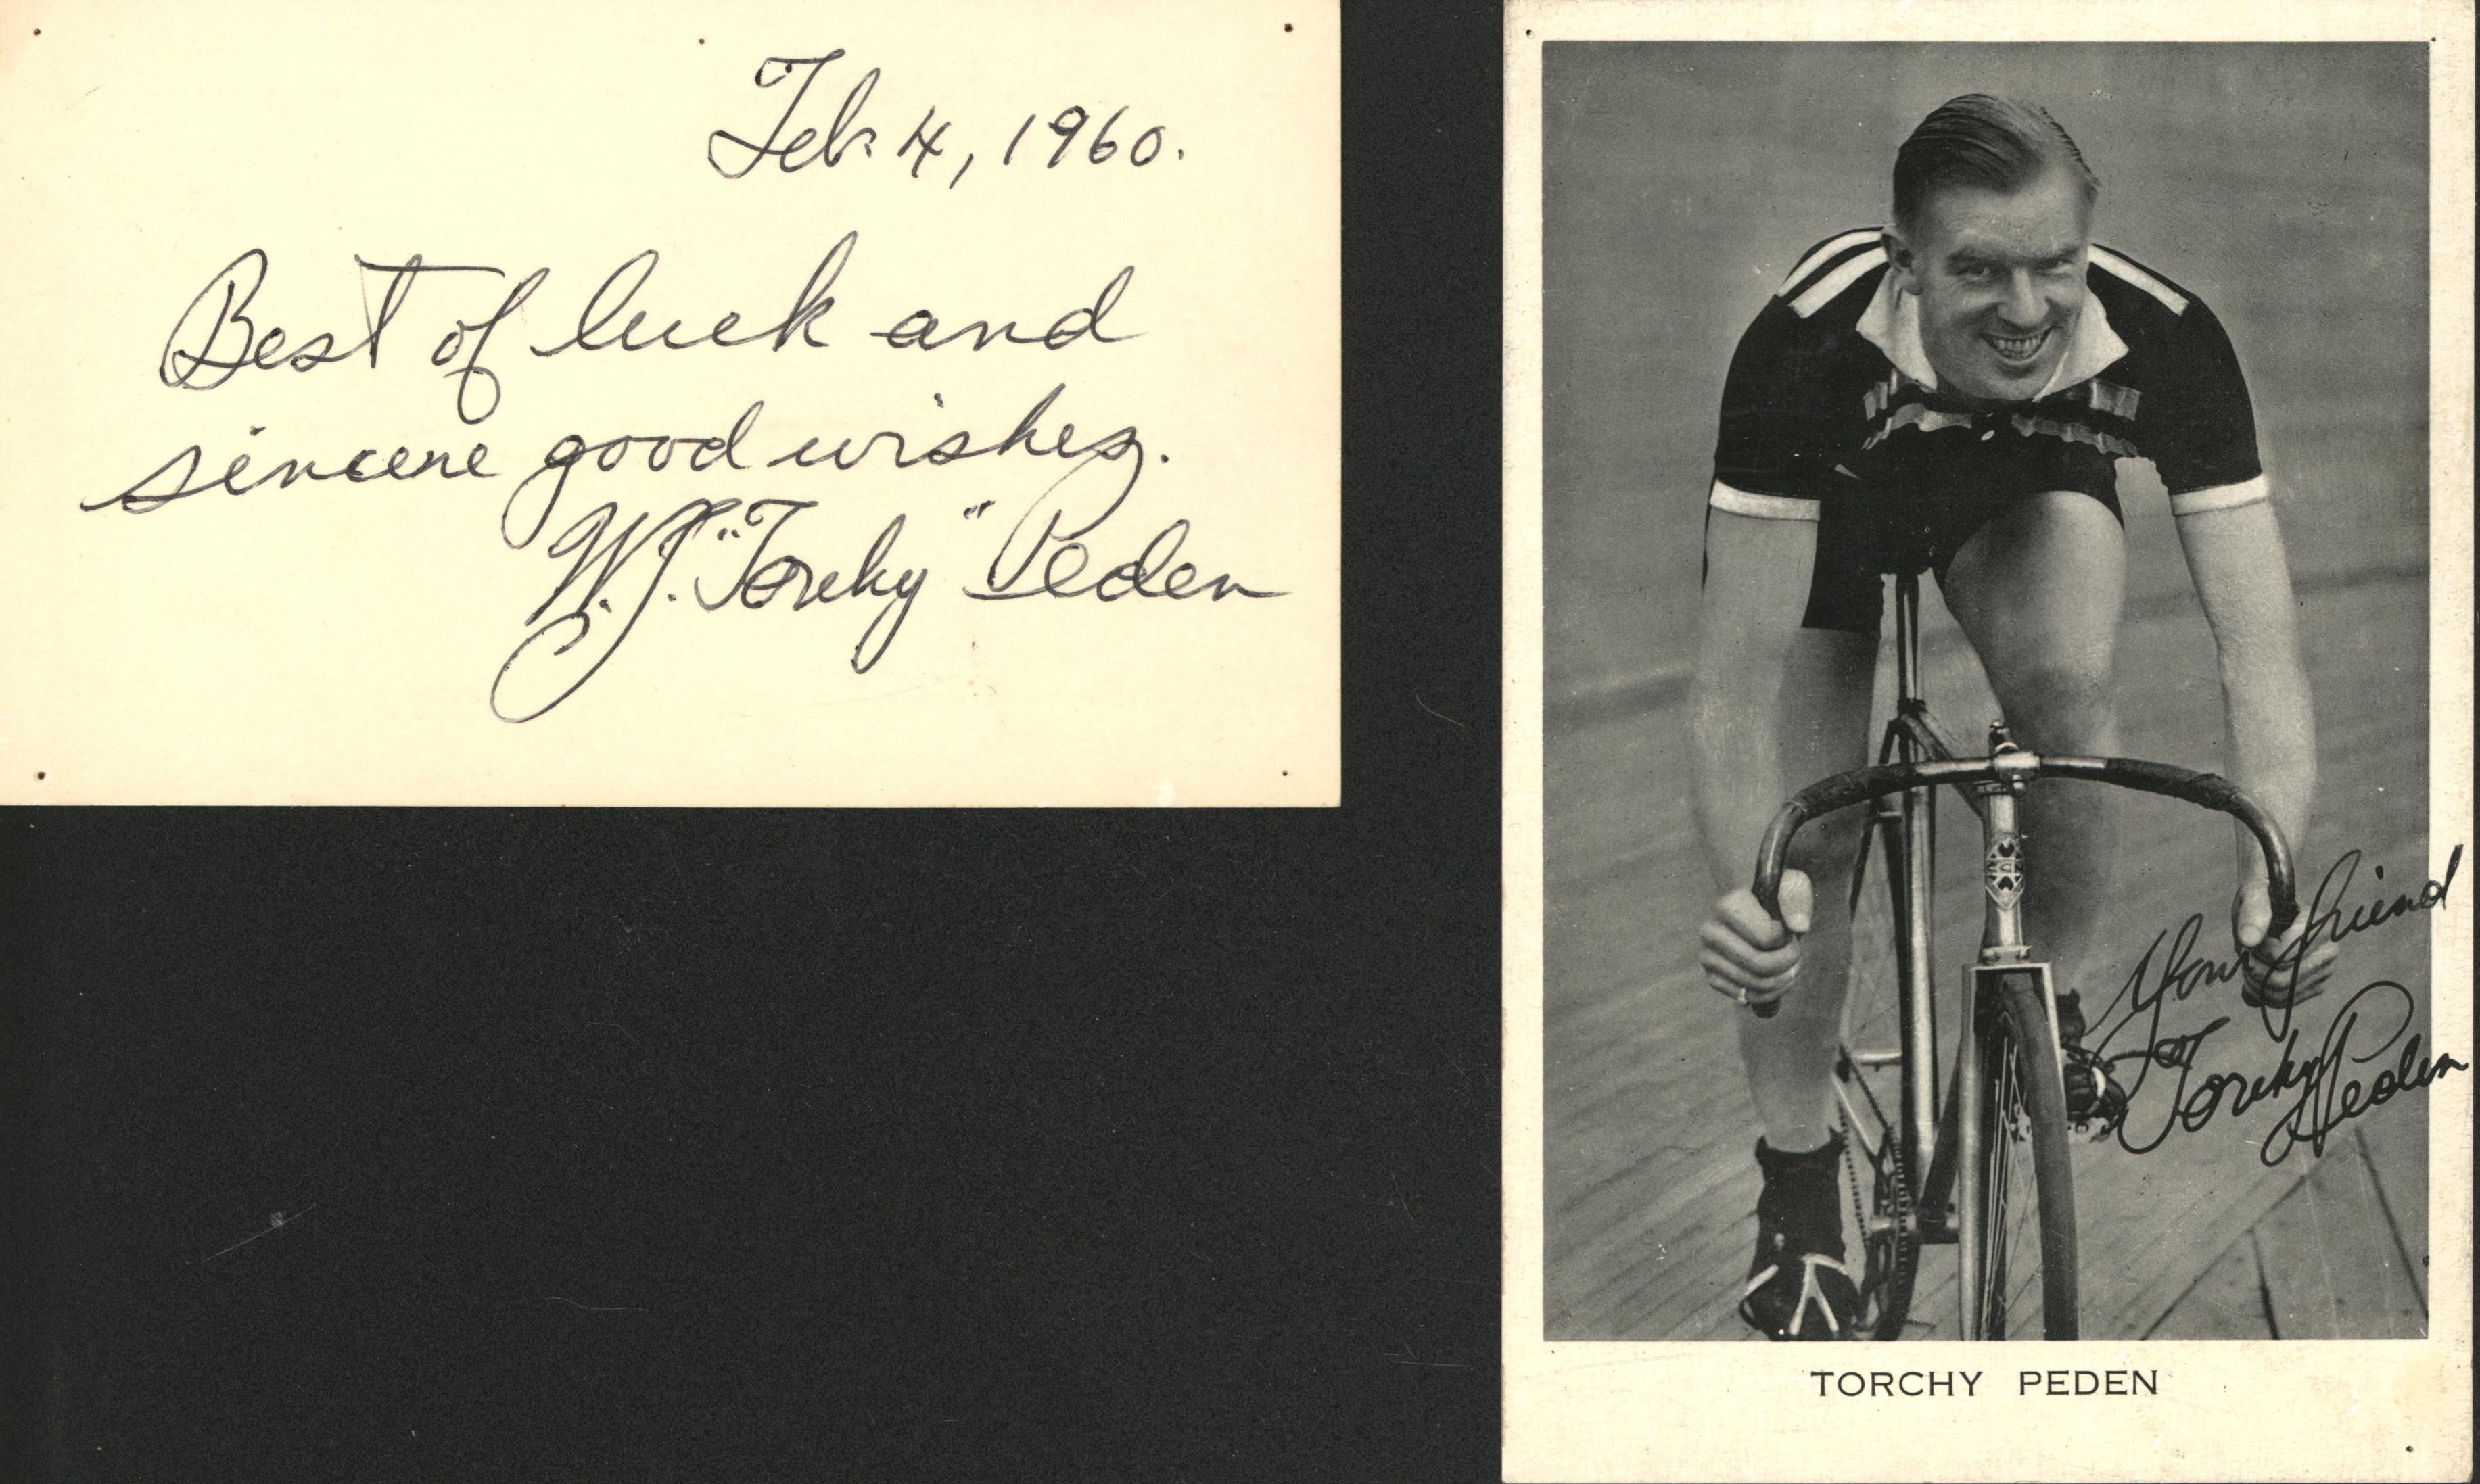 Feb. 4, 1960.
Best of luck and
sincere good wishes.
W.J. "Torchy" Peden
Your friend
Torchy Peden
TORCHY PEDEN